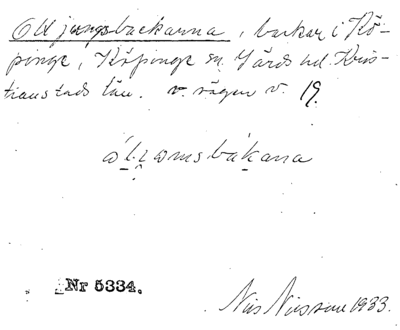 Olljungsbackarna, backar i Kö-
pinge, Köpinge sn Gärds hd. Kris-
tianstads län. v. vägen v. 19.
ol.jomsbákana
Nr 5334.
Nils Nilsson 1933.